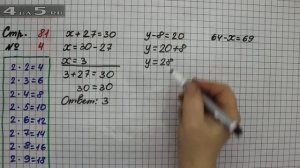 Стр. 81
№ 4
2 · 2 = 4
2 · 3 = 6
2 · 4 = 8
2 · 5 = 10
2 · 6 = 12
2 · 7 = 14
2 · 8 = 16
2 · 9 = 18
x + 27 = 30
x = 30 - 27
x = 3
3 + 27 = 30
30 = 30
Ответ: 3
y - 8 = 20
y = 20 + 8
y = 28